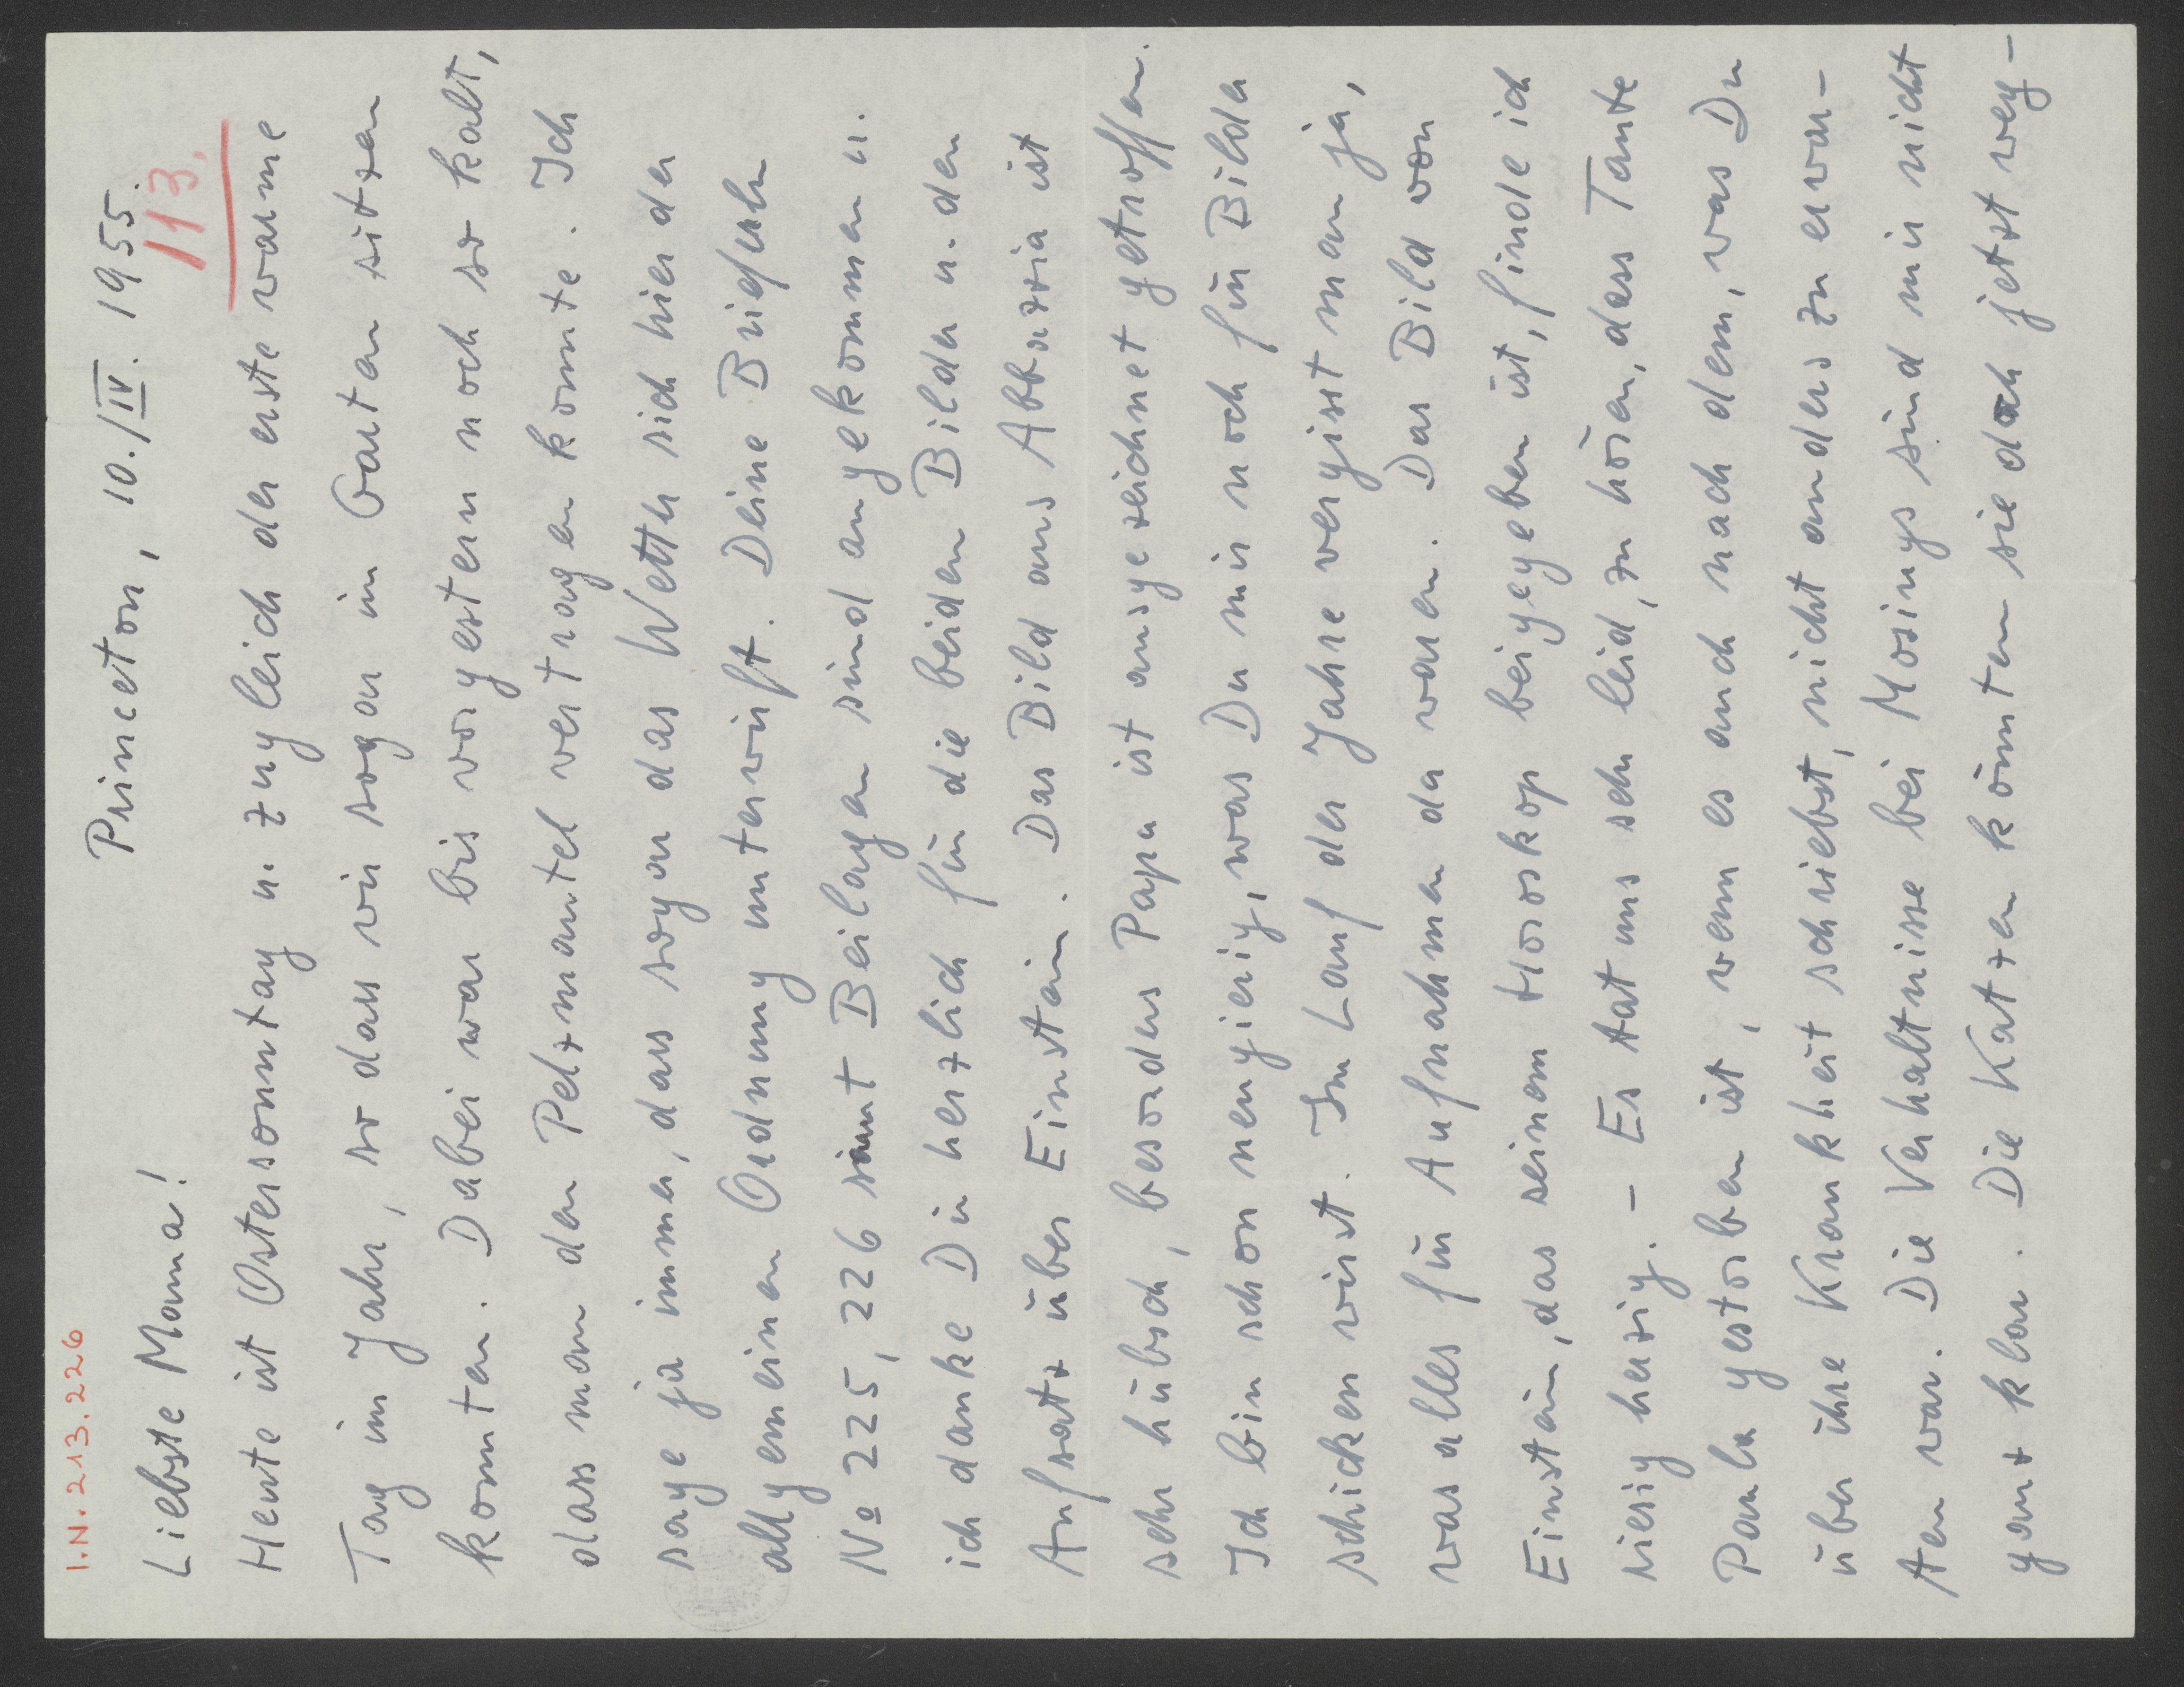 I.N. 213.226
Princeton, 10./IV. 1955.
113.
Liebste Mama!
Heute ist Ostersonntag u. zugleich der erste warme
Tag im Jahr, so dass wir sogar im Garten sitzen
konnten. Dabei war bis vorgestern noch so kalt,
dass man den Pelzmantel vertragen konnte. Ich
sage ja immer, dass sogar das Wetter sich hier der
allgemeinen Ordnung unterwirft. Deine Brieferln
No 225, 226 samt Beilagen sind angekommen u.
ich danke Dir herzlich für die beiden Bilder u. den
Aufsatz über Einstein. Das Bild aus Abbazzia ist
sehr hübsch, besonders Papa ist ausgezeichnet getroffen.
Ich bin schon neugierig, was Du mir noch für Bilder
schicken wirst. Im Lauf der Jahre vergisst man ja,
was alles für Aufnahmen da waren. Das Bild von
Einstein, das seinem Horoskop beigegeben ist, finde ich
riesig herzig. – Es tat uns sehr leid, zu hören, dass Tante
Paula gestorben ist, wenn es auch nach dem, was Du
über ihre Krankheit schriebst, nicht anders zu erwar-
ten war. Die Verhältnisse bei Mosings sind mir nicht
ganz klar. Die Katzen könnten sie doch jetzt weg-